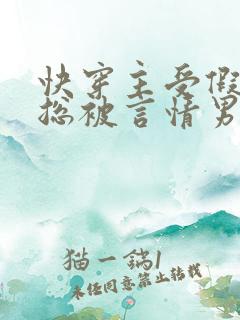 快穿主受假
总被言情男
猫一锅1
未经同意禁止转载